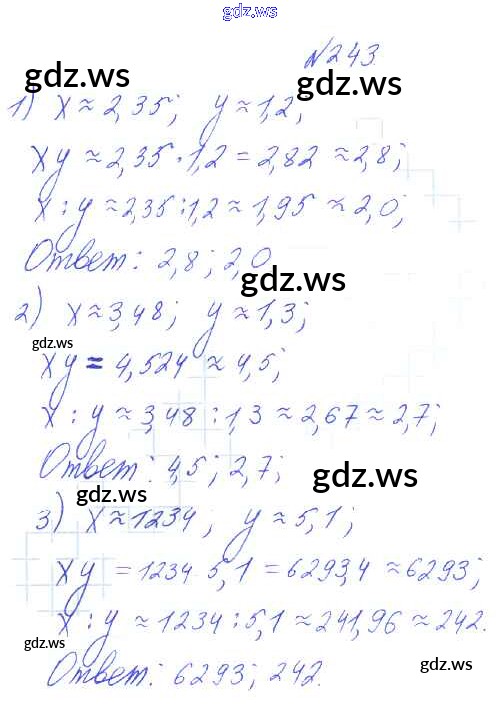 gdz.ws
№243.
gdz.ws gdz.ws
1) x ≈ 2,35; y ≈ 1,2;
xy ≈ 2,35 · 1,2 = 2,82 ≈ 2,8;
x : y ≈ 2,35 : 1,2 ≈ 1,95 ≈ 2,0;
Ответ: 2,8; 2,0
gdz.ws
2) x ≈ 3,48; y ≈ 1,3;
gdz.ws
xy = 4,524 ≈ 4,5;
x : y ≈ 3,48 : 1,3 ≈ 2,67 ≈ 2,7;
Ответ: 4,5; 2,7;
gdz.ws gdz.ws
3) x ≈ 1234; y ≈ 5,1;
xy = 1234 · 5,1 = 6293,4 ≈ 6293;
x : y ≈ 1234 : 5,1 ≈ 241,96 ≈ 242.
gdz.ws gdz.ws
Ответ: 6293; 242.